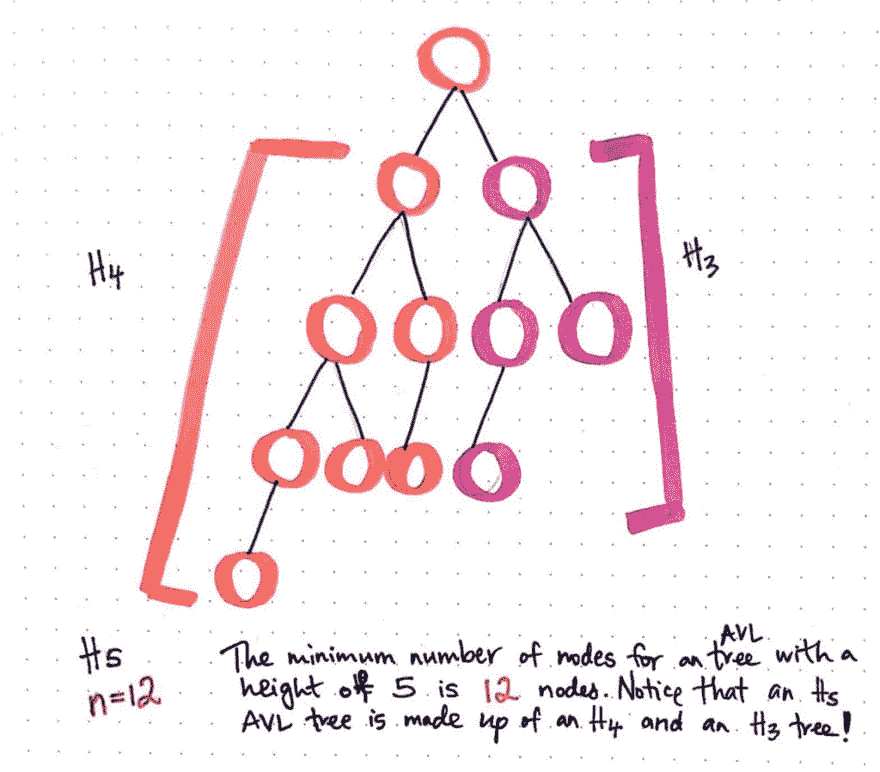 H4
H3
H5
n=12
The minimum number of nodes for an AVL tree with a
height of 5 is 12 nodes. Notice that an H5
AVL tree is made up of an H4 and an H3 tree!